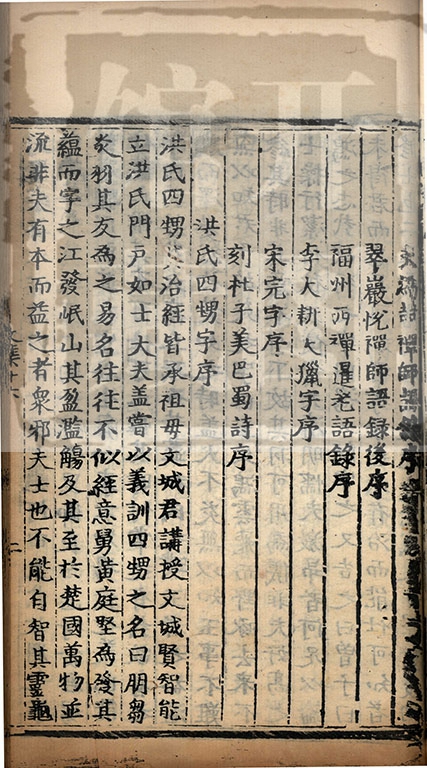 大溈喆禪師語錄序
翠巖悅禪師語錄後序
福州西禪暹老語錄序
李大耕大獵字序
宋完字序
刻杜子美巴蜀詩序
洪氏四甥字序
洪氏四甥其治經皆承祖母文城君講授文城賢智能
立洪氏門戶如士大夫盖嘗以義訓四甥之名曰朋芻
炎羽其友為之易名往往不似經意舅黃庭堅為發其
蘊而字之江發岷山其盈濫觴及其至於楚國萬物並
流非夫有本而益之者衆邪夫士也不能自智其靈龜
文集十六
二